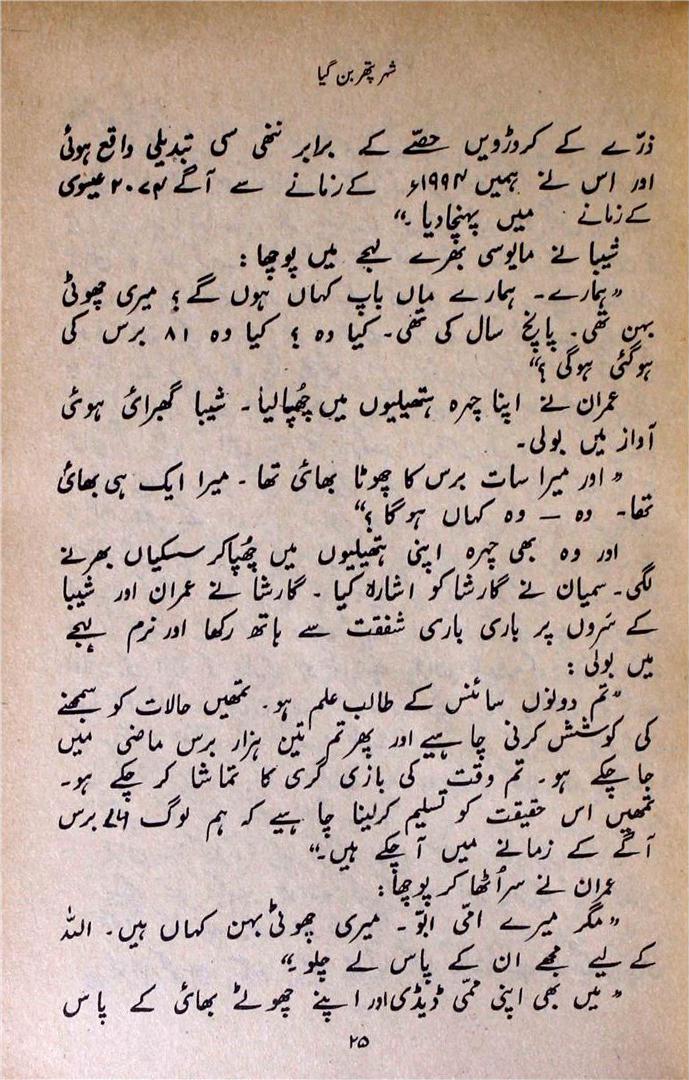 شہر پتھر بن گیا
ذرّے کے کروڑویں حصّے کے برابر ننھی سی تبدیلی واقع ہوئی
اور اس نے ہمیں ۱۹۹۴ء کے زمانے سے آگے ۲۰۷۴ عیسوی
کے زمانے میں پہنچا دیا۔“
شیبا نے مایوسی بھرے لہجے میں پوچھا:
”ہمارے۔ ہمارے ماں باپ کہاں ہوں گے؟ میری چھوٹی
بہن تھی۔ پانچ سال کی تھی۔ کیا وہ ؟ کیا وہ ۸۱ برس کی
ہوگئی ہوگی ؟“
عمران نے اپنا چہرہ ہتھیلیوں میں چُھپالیا۔ شیبا گھبرائی ہوئی
آواز میں بولی۔
”اور میرا سات برس کا چھوٹا بھائی تھا۔ میرا ایک ہی بھائی
تھا۔ وہ — وہ کہاں ہوگا ؟“
اور وہ بھی چہرہ اپنی ہتھیلیوں میں چُھپاکر سسکیاں بھرنے
لگی۔ سمیان نے گارشا کو اشارہ کیا۔ گارشا نے عمران اور شیبا
کے سَروں پر باری باری شفقت سے ہاتھ رکھا اور نرم لہجے
میں بولی :
”تم دونوں سائنس کے طالب علم ہو۔ تمھیں حالات کو سمجھنے
کی کوشش کرنی چاہیے اور پھر تم تین ہزار برس ماضی میں
جاچکے ہو۔ تم وقت کی بازی گری کا تماشا کر چکے ہو۔
تمھیں اس حقیقت کو تسلیم کرلینا چاہیے کہ ہم لوگ برس
آگے کے زمانے میں آچکے ہیں۔“
عمران نے سر اُٹھا کر پوچھا:
”مگر میرے امّی ابّو۔ میری چھوٹی بہن کہاں ہیں۔ اللہ
کے لیے مجھے ان کے پاس لے چلو۔“
”میں بھی اپنی ممّی ڈیڈی اور اپنے چھوٹے بھائی کے پاس
۲۵